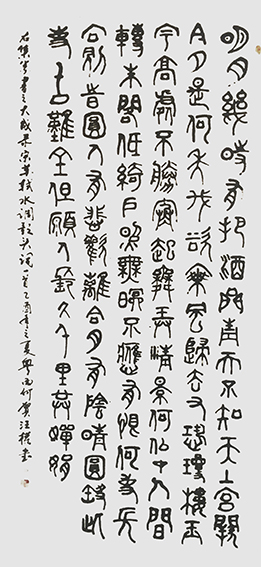 明月幾時有把酒問青天不知天上宮闕
今夕是何年我欲乘風歸去又恐瓊樓玉
宇高處不勝寒起舞弄清影何似在人間
轉朱閣低綺戶照無眠不應有恨何事長
向別時圓人有悲歡離合月有陰晴圓缺此
事古難全但願人長久千里共嬋娟
書之大成录宋蘇軾水調歌頭詞一首乙酉年之夏粵西何